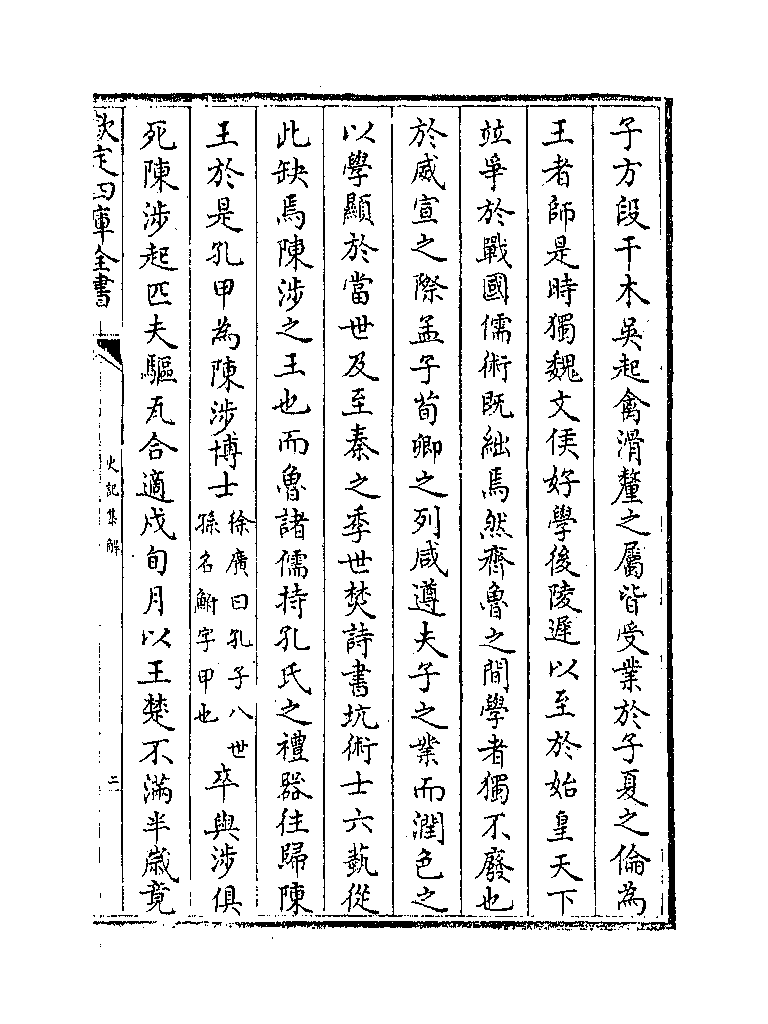 子方段干木吳起禽滑釐之屬皆受業於子夏之倫為
王者師是時獨魏文侯好學後陵遲以至於始皇天下
竝爭於戰國儒術既絀焉然齊魯之間學者獨不廢也
於威宣之際孟子荀卿之列咸遵夫子之業而潤色之
以學顯於當世及至秦之季世焚詩書坑術士六藝從
此缺焉陳涉之王也而魯諸儒持孔氏之禮器往歸陳
王於是孔甲為陳涉博士徐廣曰孔子八世孫名鮒字甲也卒與涉俱
死陳涉起匹夫驅瓦合適戍旬月以王楚不滿半歲竟
欽定四庫全書
史記集解
二